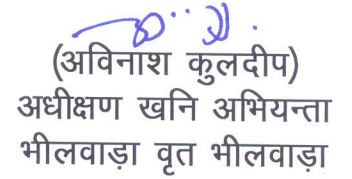 (अविनाश कुलदीप)
अधीक्षण खनि अभियन्ता
भीलवाड़ा वृत भीलवाड़ा